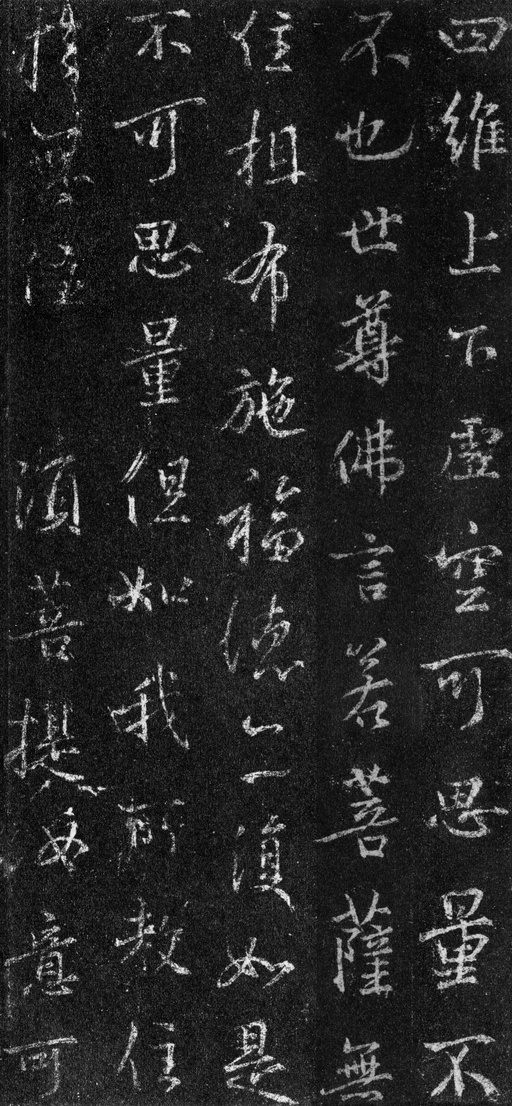 四維上下虛空可思量不
不也世尊佛言若菩薩無
住相布施福德亦復如是
不可思量但如我所教住
須菩提意可